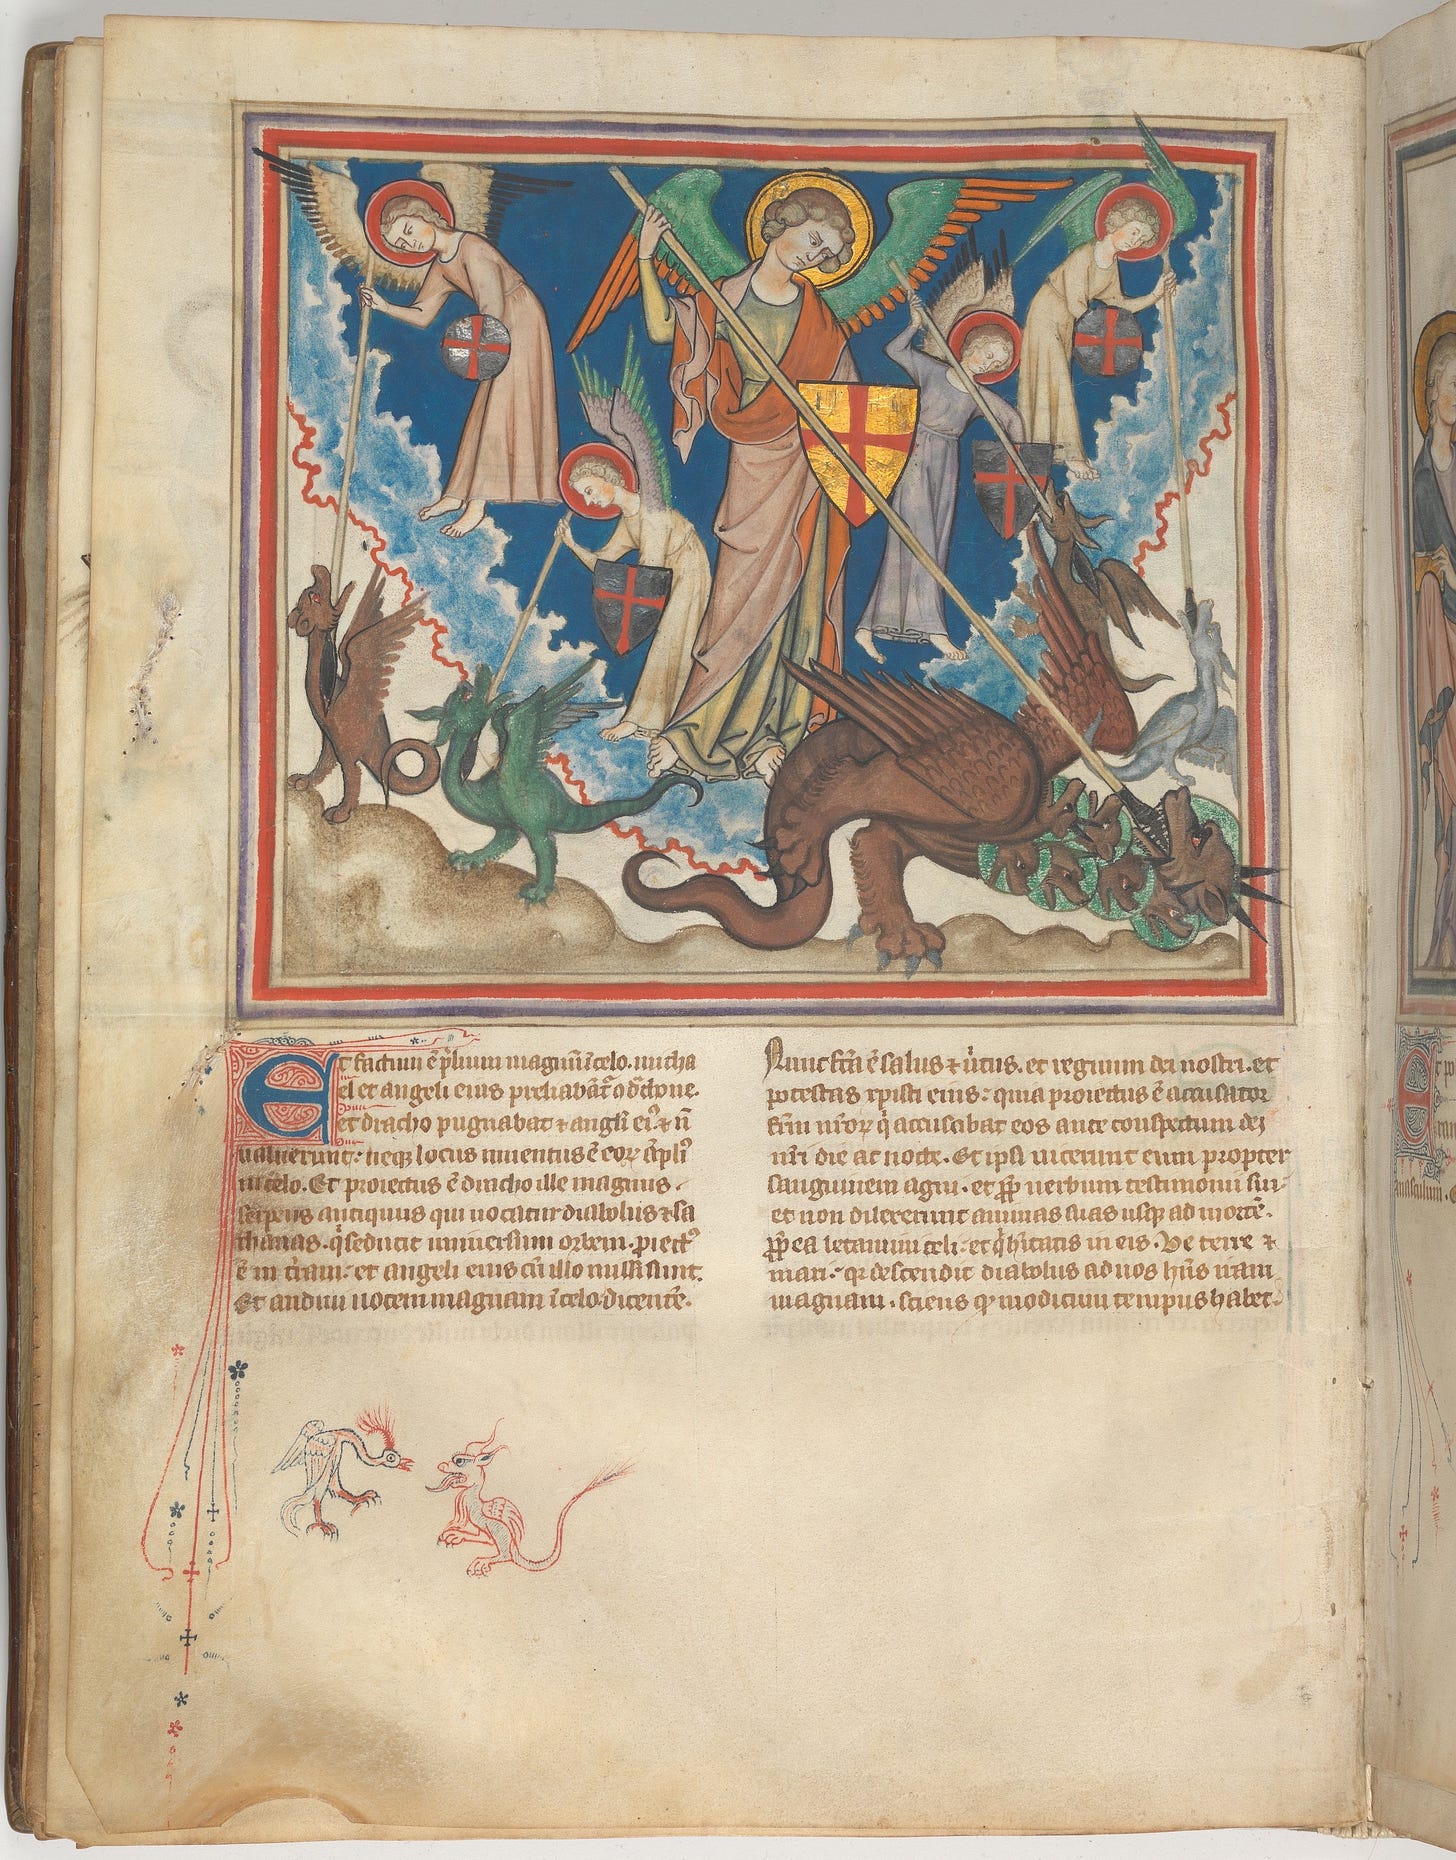 Et factum ē p̄lium magnū ī celo. micha
el et angeli eius preliabāt᷑ c̄ dracone.
et dracho pugnabat ⁊ angl̄i ei᷒ ⁊ n̄
ualuerunt: neq; locus inuentus ē eoꝝ ampli᷒
in celo. Et proiectus ē dracho ille magnus.
serpens antiquus qui uocatur diabolus ⁊ sa
thanas. q̇ seducit uniuersum orbem. ꝓiect᷒
ē in t̄ram: et angeli eius cū illo missi sunt.
Et audiui uocem magnam ī celo dicentē.
Nunc fc̄a ē salus ⁊ u̇tus. et regnum dei nostri. et
potestas xpisti eius: quia proiectus ē accusator
fr̄m nr̄oꝝ q̇ accusabat eos ante conspectum dei
nr̄i die ac nocte. Et ipsi uicerunt eum propter
sanguinem agni. et ꝓp̄ uerbum testimonii sui
et non dilexerunt animas suas usq; ad mortē.
ꝓp̄ea letamini celi: et q̇ habitatis in eis. Ve terre ⁊
mari: q̄ descendit diabolus ad uos hn̄s iram
magnam. sciens q̄ modicum tempus habet.
masculum